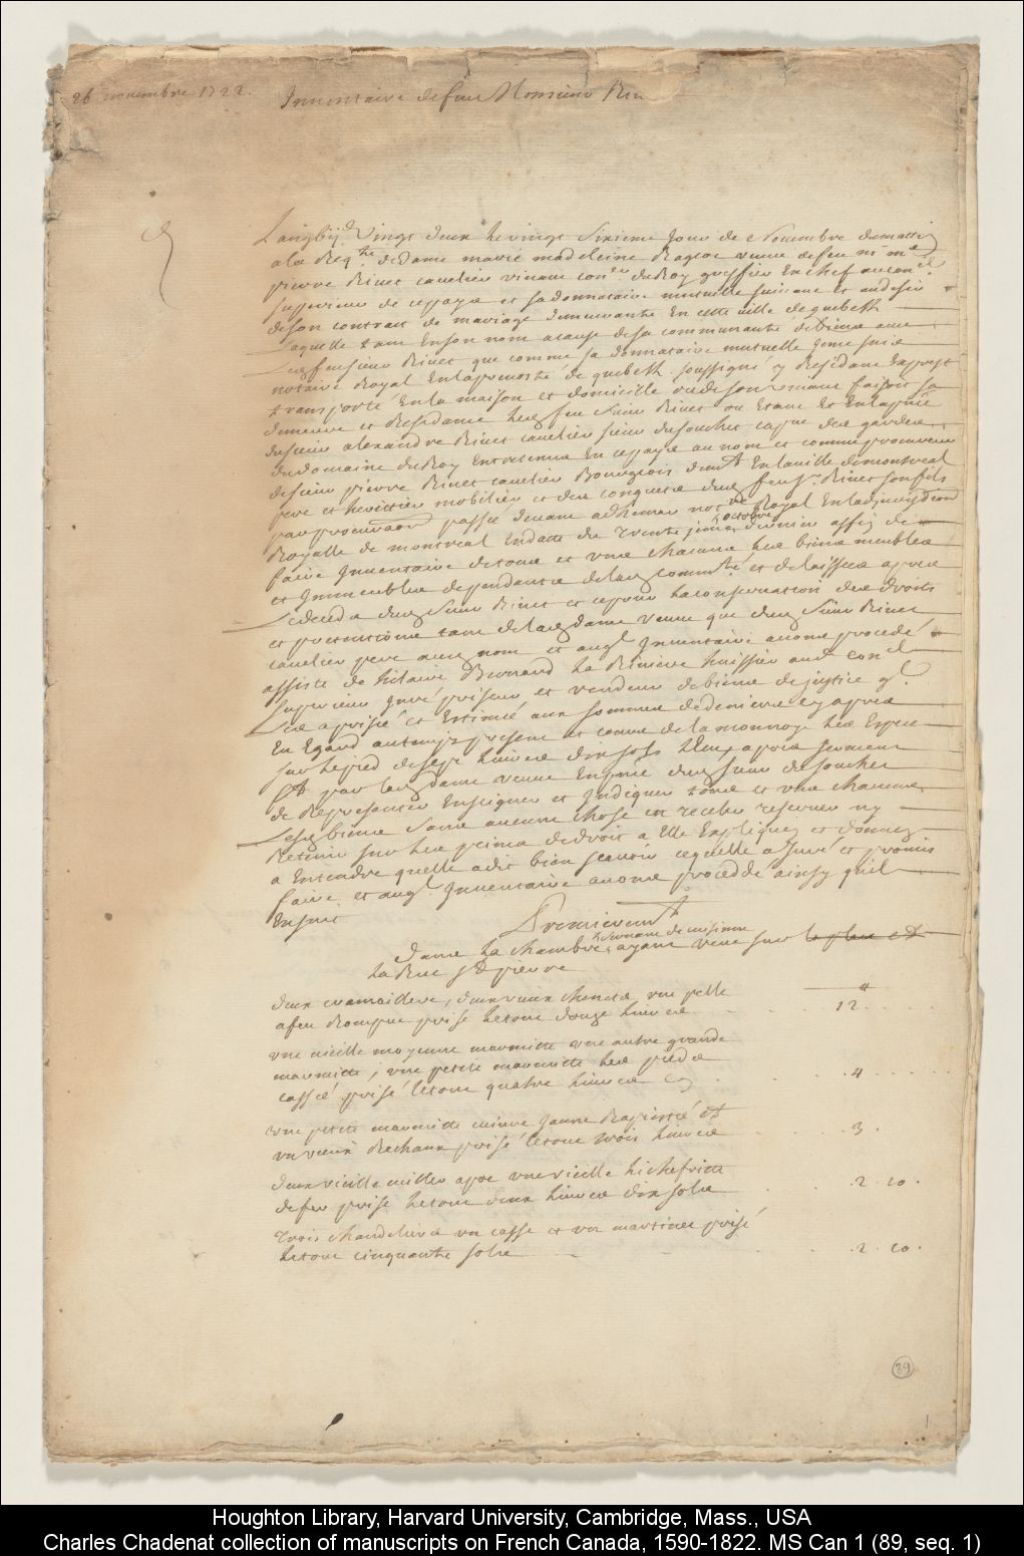 26 novembre 1722.
Inventaire de feu Monsieur Riv
L'an gbij^c Vingt deux le vingt Sixieme Jour de Novembre du matin
a la Req^te de Dame marie madeleine Rageot veuve de feu m^e
pierre Rivet cavelier vivant con^er du Roy greffier En chef au con^el
superieur de ce paÿs et sa donnataire mutuelle suivant et au desir
de son contrat de mariage demeurante En cette ville de quebeth
Laquelle tant En son nom a cause de la communauté de biens avec
Led feu sieur Rivet que comme sa donnataire mutuelle Je me suis
notaire Royal En la prevosté de quebeth soussigné y Residant Expres
transporté En la maison et domicille ou led son mary faisoit sa
demeure et Residance led feu Sieur Rivet ou Etant Et En la p^nce
du sieur alexandre Rivet cavelier sieur du souchet cap^ne des gardes
du domaine du Roy Entretenue En ce paÿs au nom et comme procureur
de sieur pierre Rivet cavelier Bourgeois dem^t En la ville de montreal
pere et heritier mobilier et des conquets dud feu s^r Rivet son fils
par procuraon passée devant adhemar not^re Royal En la Jurisdion
octobre
Royalle de montreal En datte du Trente jeme dernier affin de
faire Inventaire de tous et uns chacuns les biens meubles
et Immeubles dependants de lad comm^té et delaissés apres
Le deceds dud Sieur Rivet et ce pour la conservation des droits
et pretentions tant de lad dame veuve que dud Sieur Rivet
cavelier pere aud nom et aud Inventaire avons procedé
assisté de hilaire Bernard La Riviere huissier aud con^el
superieur Juré priseur et vendeur de biens de justice q^i
Les a prisé et Estimé aux sommes de deniers cy apres
En Egard au temps present et cours de la monnoye
sur le pied de sept livres dix sols
par lad dame veuve En p^nce dud sieur du souchet
de Representer Enseigner et Indiquer tous et uns chacuns
Lesd biens sans aucune chose en receler reserver ny
Retenir sur les peines de droit a Elle Expliqué et donné
a Entendre quelle a dit bien scavoir ce quelle a Juré et promis
faire, et aud Inventaire avons procedé ainsy quil
Ensuit
Premierem^t
servant de cuisine
Dans la chambre, ayant veue sur le fleuve et
La Rue S^t pierre
deux cramailleres, deux vieux chenets, une pelle
a feu Rompue prisé le tout douze livres 12.
une vieille moyenne marmitte une autre grande
marmitte; une petite marmitte les pieds
cassé prisé le tout quatre livres 4
une petite marmitte cuivre Jaune Rapiessé et
un vieux Rechaux prisé le tout trois livres 3.
deux vieille une vieille lichefritte
de fer prisé le tout deux livres dix sols 2. 10.
Trois chandeliers un cassé et un martinet prisé
le tout cinquante sols 2. 10.
89
1
Houghton Library, Harvard University, Cambridge, Mass., USA
Charles Chadenat collection of manuscripts on French Canada, 1590-1822. MS Can 1 (89, seq. 1)